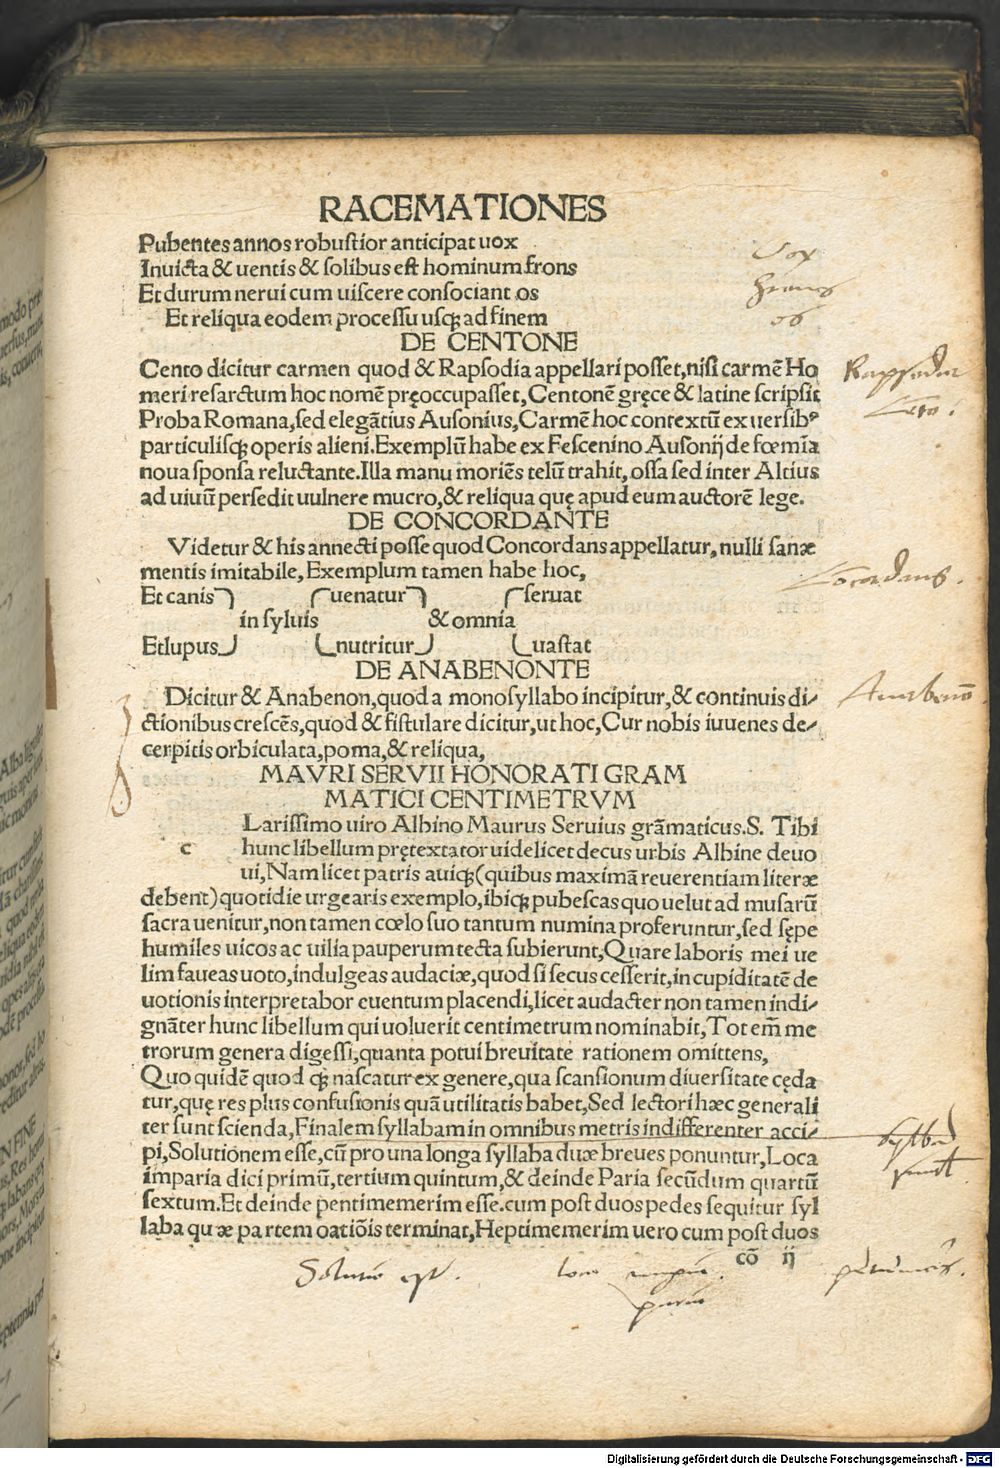 RACEMATIONES
Pubentes annos robustior anticipat uox
Inuicta & uentis & solibus est hominum frons
Et durum nerui cum uiscere consociant os
Et reliqua eodem processu usq; ad finem
DE CENTONE
Cento dicitur carmen quod & Rapsodia appellari posset, nisi carmē Ho
meri resarctum hoc nomē pręoccupasset, Centonē gręce & latine scripsit
Proba Romana, sed elegātius Ausonius, Carmē hoc contextū ex uersibꝰ
particulisq; operis alieni. Exemplū habe ex Fescenino Ausonij de fœmīa
noua sponsa reluctante. Illa manu moriēs telū trahit, ossa sed inter Altius
ad uiuū persedit uulnere mucro, & reliqua quę apud eum auctorē lege.
DE CONCORDANTE
Videtur & his annecti posse quod Concordans appellatur, nulli sanæ
mentis imitabile, Exemplum tamen habe hoc,
Et canis uenatur seruat
in syluis & omnia
Et lupus nutritur uastat
DE ANABENONTE
Dicitur & Anabenon, quod a monosyllabo incipitur, & continuis di/
ctionibus crescēs, quod & fistulare dicitur, ut hoc, Cur nobis iuuenes de/
cerpitis orbiculata, poma, & reliqua,
MAVRI SERVII HONORATI GRAM
MATICI CENTIMETRVM
Larissimo uiro Albino Maurus Seruius grāmaticus. S. Tibi
c hunc libellum prętextator uidelicet decus urbis Albine deuo
ui, Nam licet patris auiq; (quibus maximā reuerentiam literæ
debent) quotidie urgearis exemplo, ibiq; pubescas quo uelut ad musarū
sacra uenitur, non tamen cœlo suo tantum numina proferuntur, sed sępe
humiles uicos ac uilia pauperum tecta subierunt, Quare laboris mei ue
lim faueas uoto, indulgeas audaciæ, quod si secus cesserit, in cupiditatē de
uotionis interpretabor euentum placendi, licet audacter non tamen indi/
gnāter hunc libellum qui uoluerit centimetrum nominabit, Tot em̄ me
trorum genera digessi, quanta potui breuitate rationem omittens,
Quo quidē quod q; nascatur ex genere, qua scansionum diuersitate cęda
tur, quę res plus confusionis quā utilitatis babet, Sed lectori hæc generali
ter sunt scienda, Finalem syllabam in omnibus metris indifferenter acci/
pi, Solutionem esse, cū pro una longa syllaba duæ breues ponuntur, Loca
imparia dici primū, tertium quintum, & deinde Paria secūdum quartū
sextum. Et deinde pentimemerim esse. cum post duos pedes sequitur syl
laba qu æ partem oatiōis terminat, Heptimemerim uero cum post duos
cō ij
Vox
os
Solutio
Digitalisierung gefördert durch die Deutsche Forschungsgemeinschaft - DFG